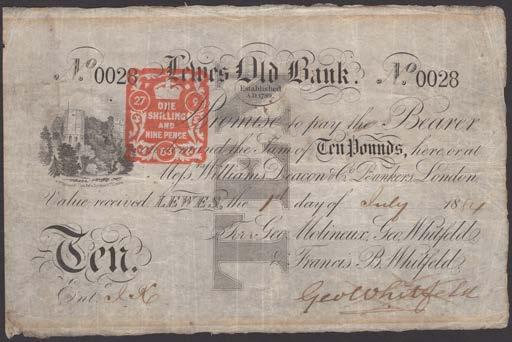 No 0028 Lewes Old Bank. No 0028
Established
A.D. 1789
ONE
SHILLING
AND
NINE PENCE
27 9
63
Promise to pay the Bearer
the Sum of Ten Pounds, here, or at
Messrs Williams Deacon & Co Bankers London
Value received LEWES, the 1st day of July 1864
For Geo Molineux, Geo Whitfeld
& Francis B. Whitfeld.
Ten.
TEN
Entd J K
Geo Whitfeld